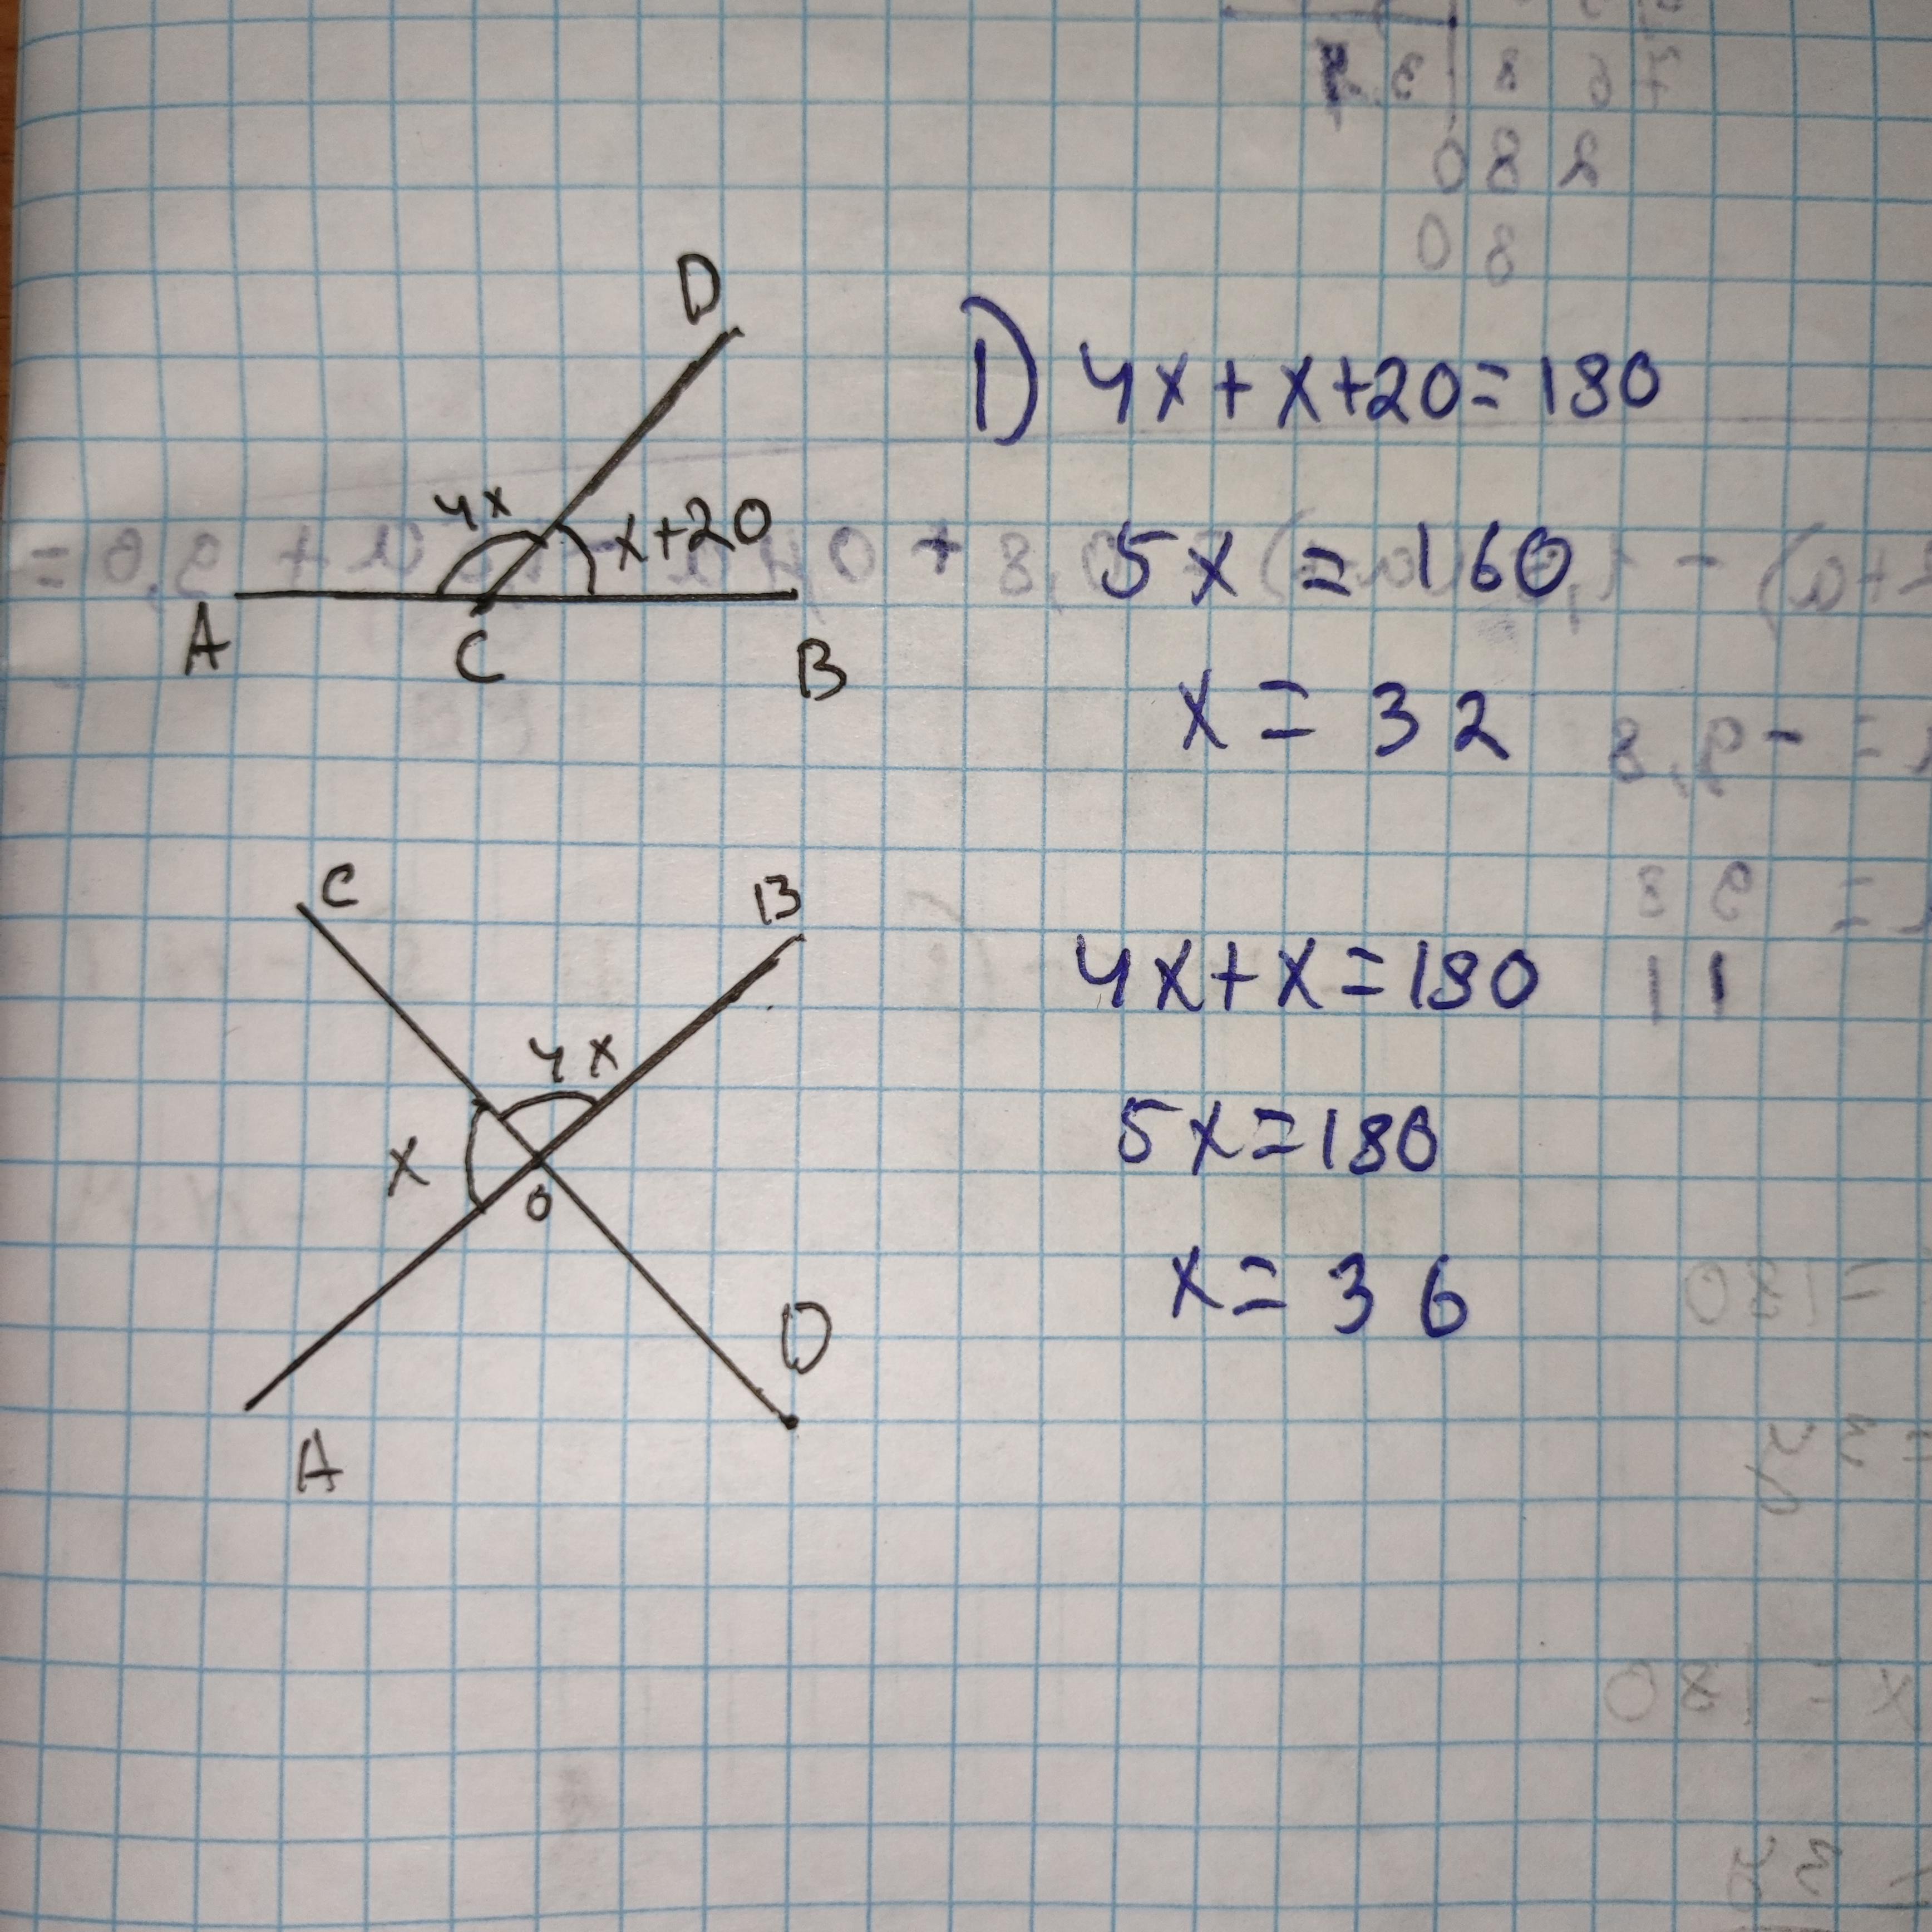 D
4x
x+20
A
C
B
1) 4x+x+20=180
5x = 160
x = 32
C
B
4x
x
O
D
A
4x+x=180
5x=180
x=36